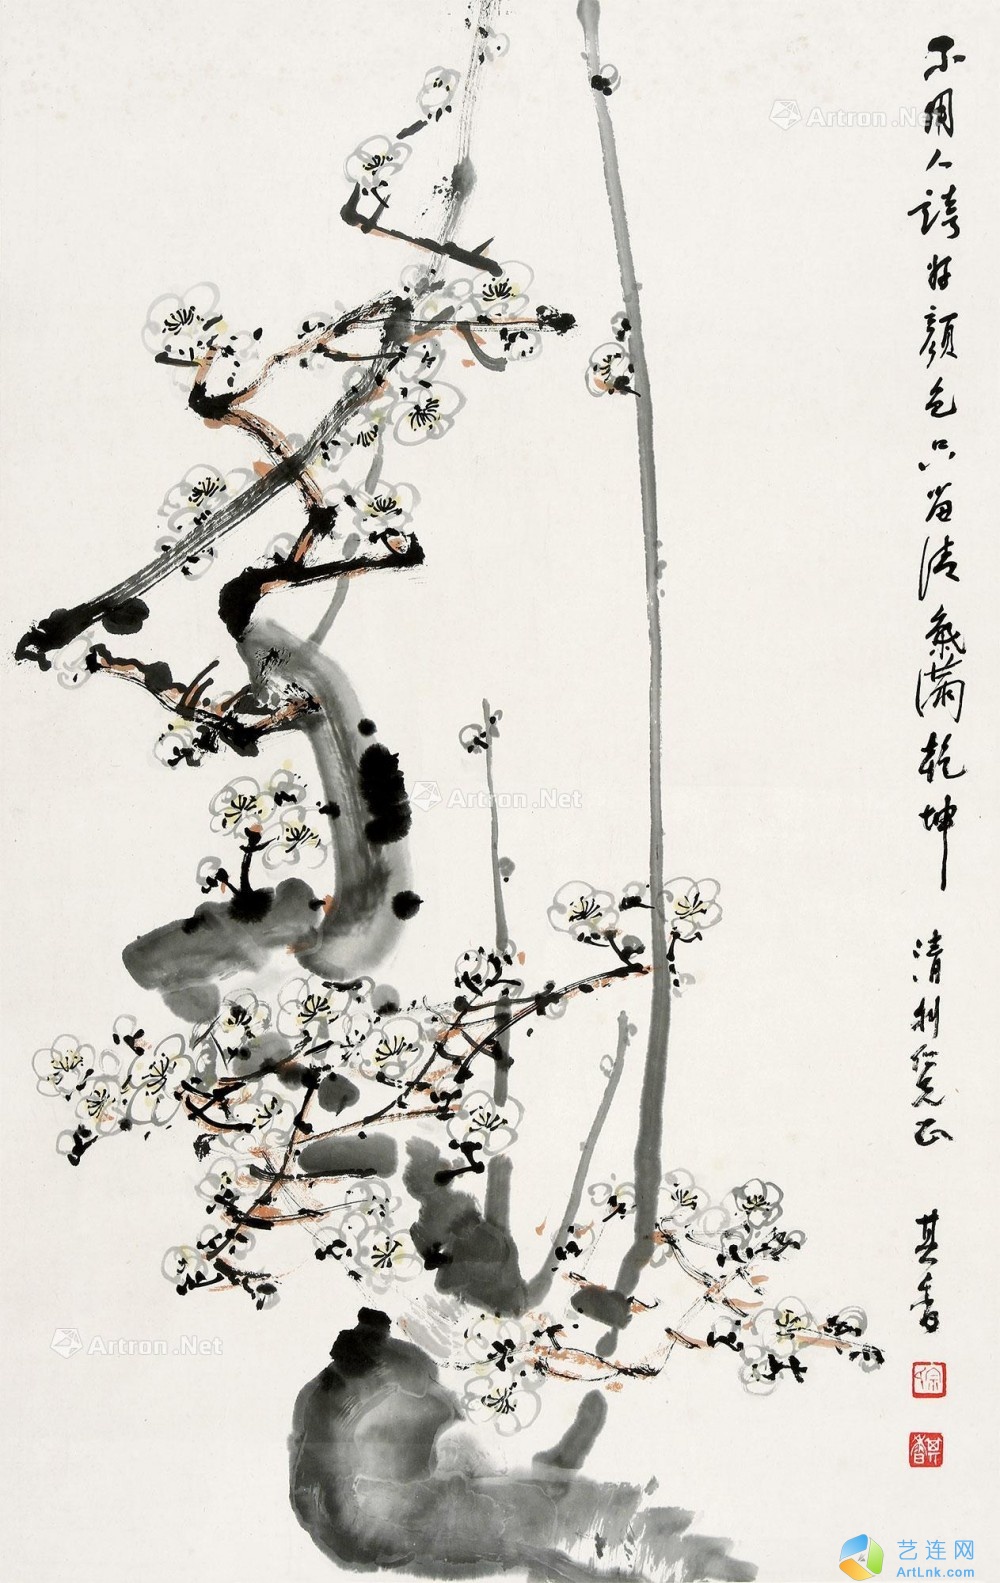 不用人誇好顏色只留清氣滿乾坤
清利
正
其香
其香
Artron.Net
Artron.Net
Artron.Net
艺连网
ArtLnk.com